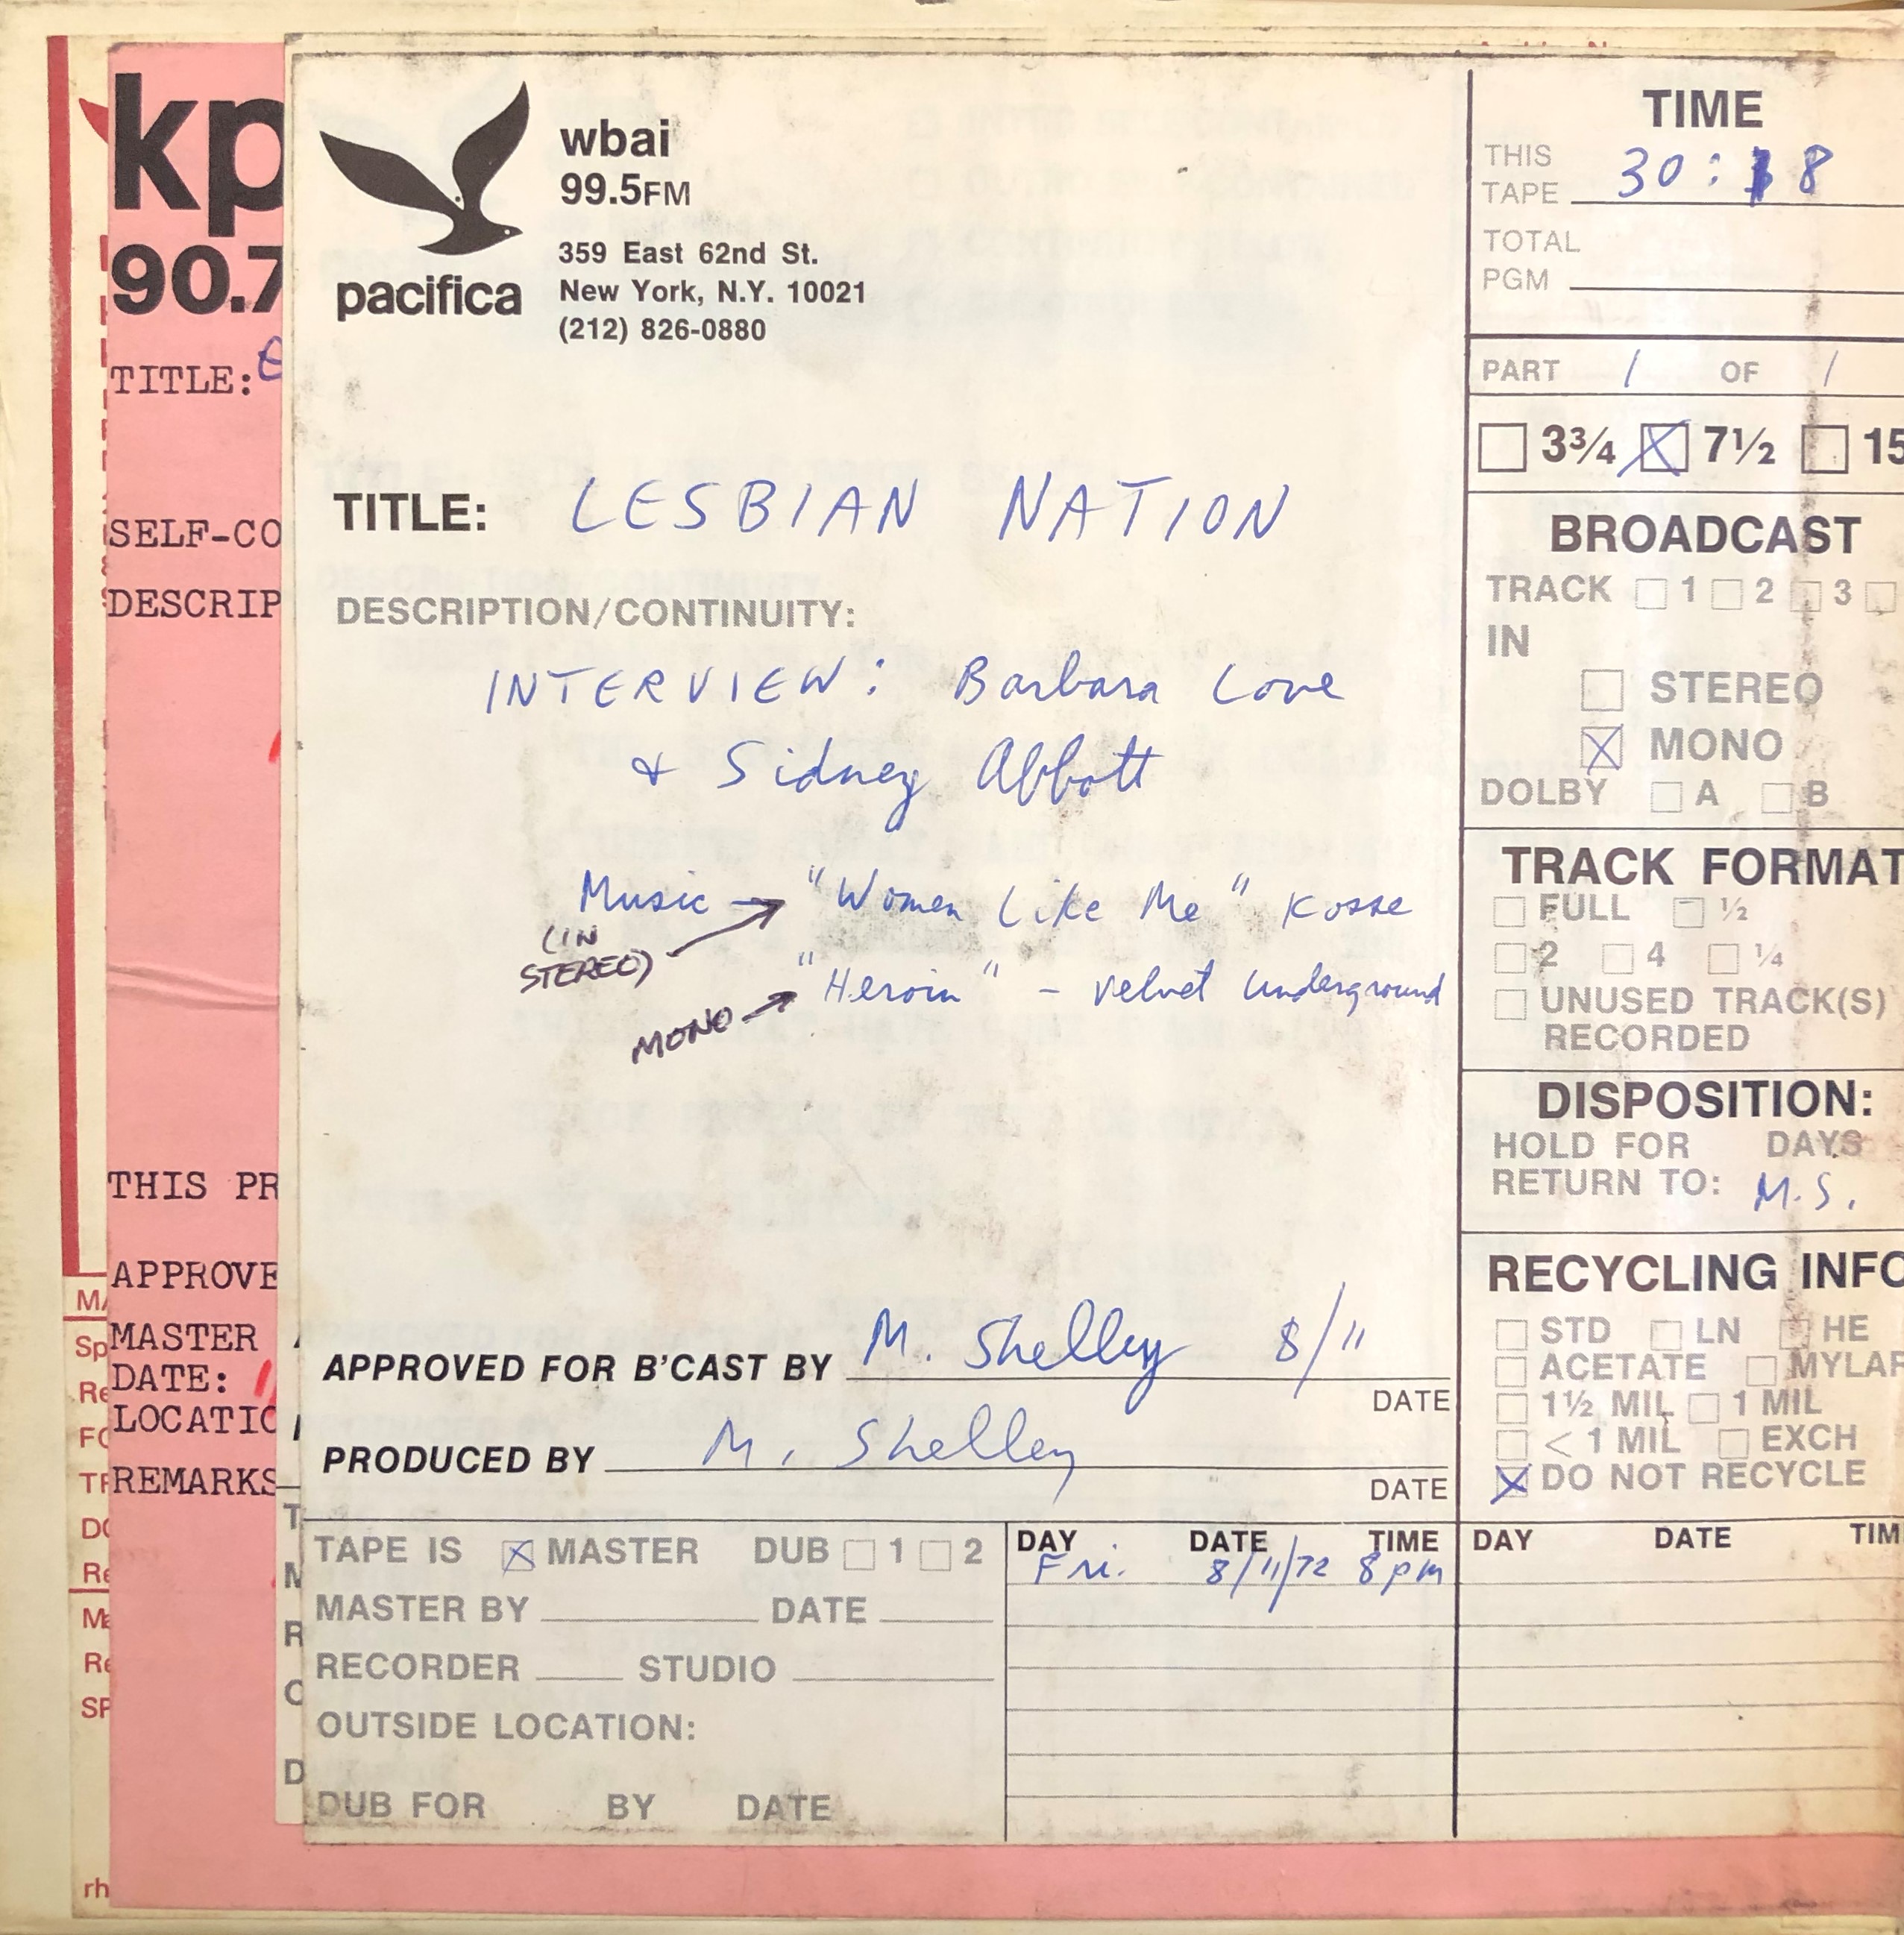 kp
90.7
TITLE:
SELF-CO
DESCRIP
THIS PR
APPROVE
MASTER
DATE:
LOCATIO
REMARKS
MA
Sp
Re
FO
TR
DO
Re
Ma
Re
SP
rh
T
M
R
O
D
wbai
99.5FM
359 East 62nd St.
New York, N.Y. 10021
(212) 826-0880
pacifica
TITLE: LESBIAN NATION
DESCRIPTION/CONTINUITY:
INTERVIEW: Barbara Love
& Sidney Abbott
Music → "Women Like Me" Kosse
(IN
STEREO)
"Heroin" - Velvet Underground
MONO →
APPROVED FOR B'CAST BY M. Shelley 8/11
DATE
PRODUCED BY M. Shelley
DATE
TAPE IS MASTER DUB 1 2
MASTER BY DATE
RECORDER STUDIO
OUTSIDE LOCATION:
DUB FOR BY DATE
DAY DATE TIME
Fri. 8/11/72 8 pm
TIME
THIS
TAPE 30: 8
TOTAL
PGM
PART 1 OF 1
3¾ 7½ 15
BROADCAST
TRACK 1 2 3
IN
STEREO
MONO
DOLBY A B
TRACK FORMAT
FULL ½
2 4 ¼
UNUSED TRACK(S)
RECORDED
DISPOSITION:
HOLD FOR DAYS
RETURN TO: M.S.
RECYCLING INFO
STD LN HE
ACETATE MYLAR
1½ MIL 1 MIL
< 1 MIL EXCH
DO NOT RECYCLE
DAY DATE TIM